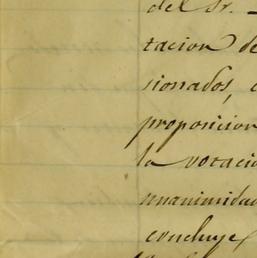 del Sr.
tacion de
sionados,
proposicion
la votacio
unanimidad
concluye